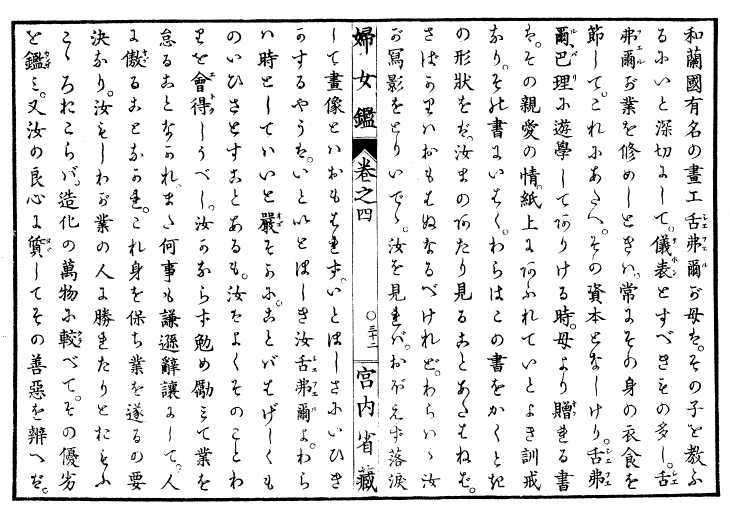 和蘭國有名の畫工舌弗爾が母は。その子を教ふ
るにいと深切にして。儀表とすべきもの多し。舌
弗爾が業を修めしときは。常にその身の衣食を
節して。これにあたへ。その資本となしけり。舌弗
爾、巴理に遊學してありける時。母より贈れる書
は。その親愛の情。紙上にあふれていとよき訓戒
なり。その書にいはく。わらはこの書をかくとき
の形狀をば。汝まのあたり見ることあたはねば。
さばかりにはおもはぬなるべけれど。わらはゝ汝
が冩影をとりいでゝ。汝を見れば。おぼえず落淚
婦女鑑 卷之四 ○三十二 宮内省藏
して畫像とはおもはれず。いとほしさにいひき
かするやうは。いといとほしき汝舌弗爾よ。わら
は時としてはいと嚴そかに。ことばはげしくも
のいひさとすことあるも。汝はよくそのことわ
りを會得しうべし。汝かならず勉め勵みて業を
怠ることなかれ。また何事も謙遜辭讓にして。人
に傲ることなかれ。これ身を保ち業を遂るの要
決なり。汝もしわが業の人に勝れたりとおもふ
こゝろおこらば。造化の萬物に較べて。その優劣
を鑑み。又汝の良心に質してその善惡を辨へば。